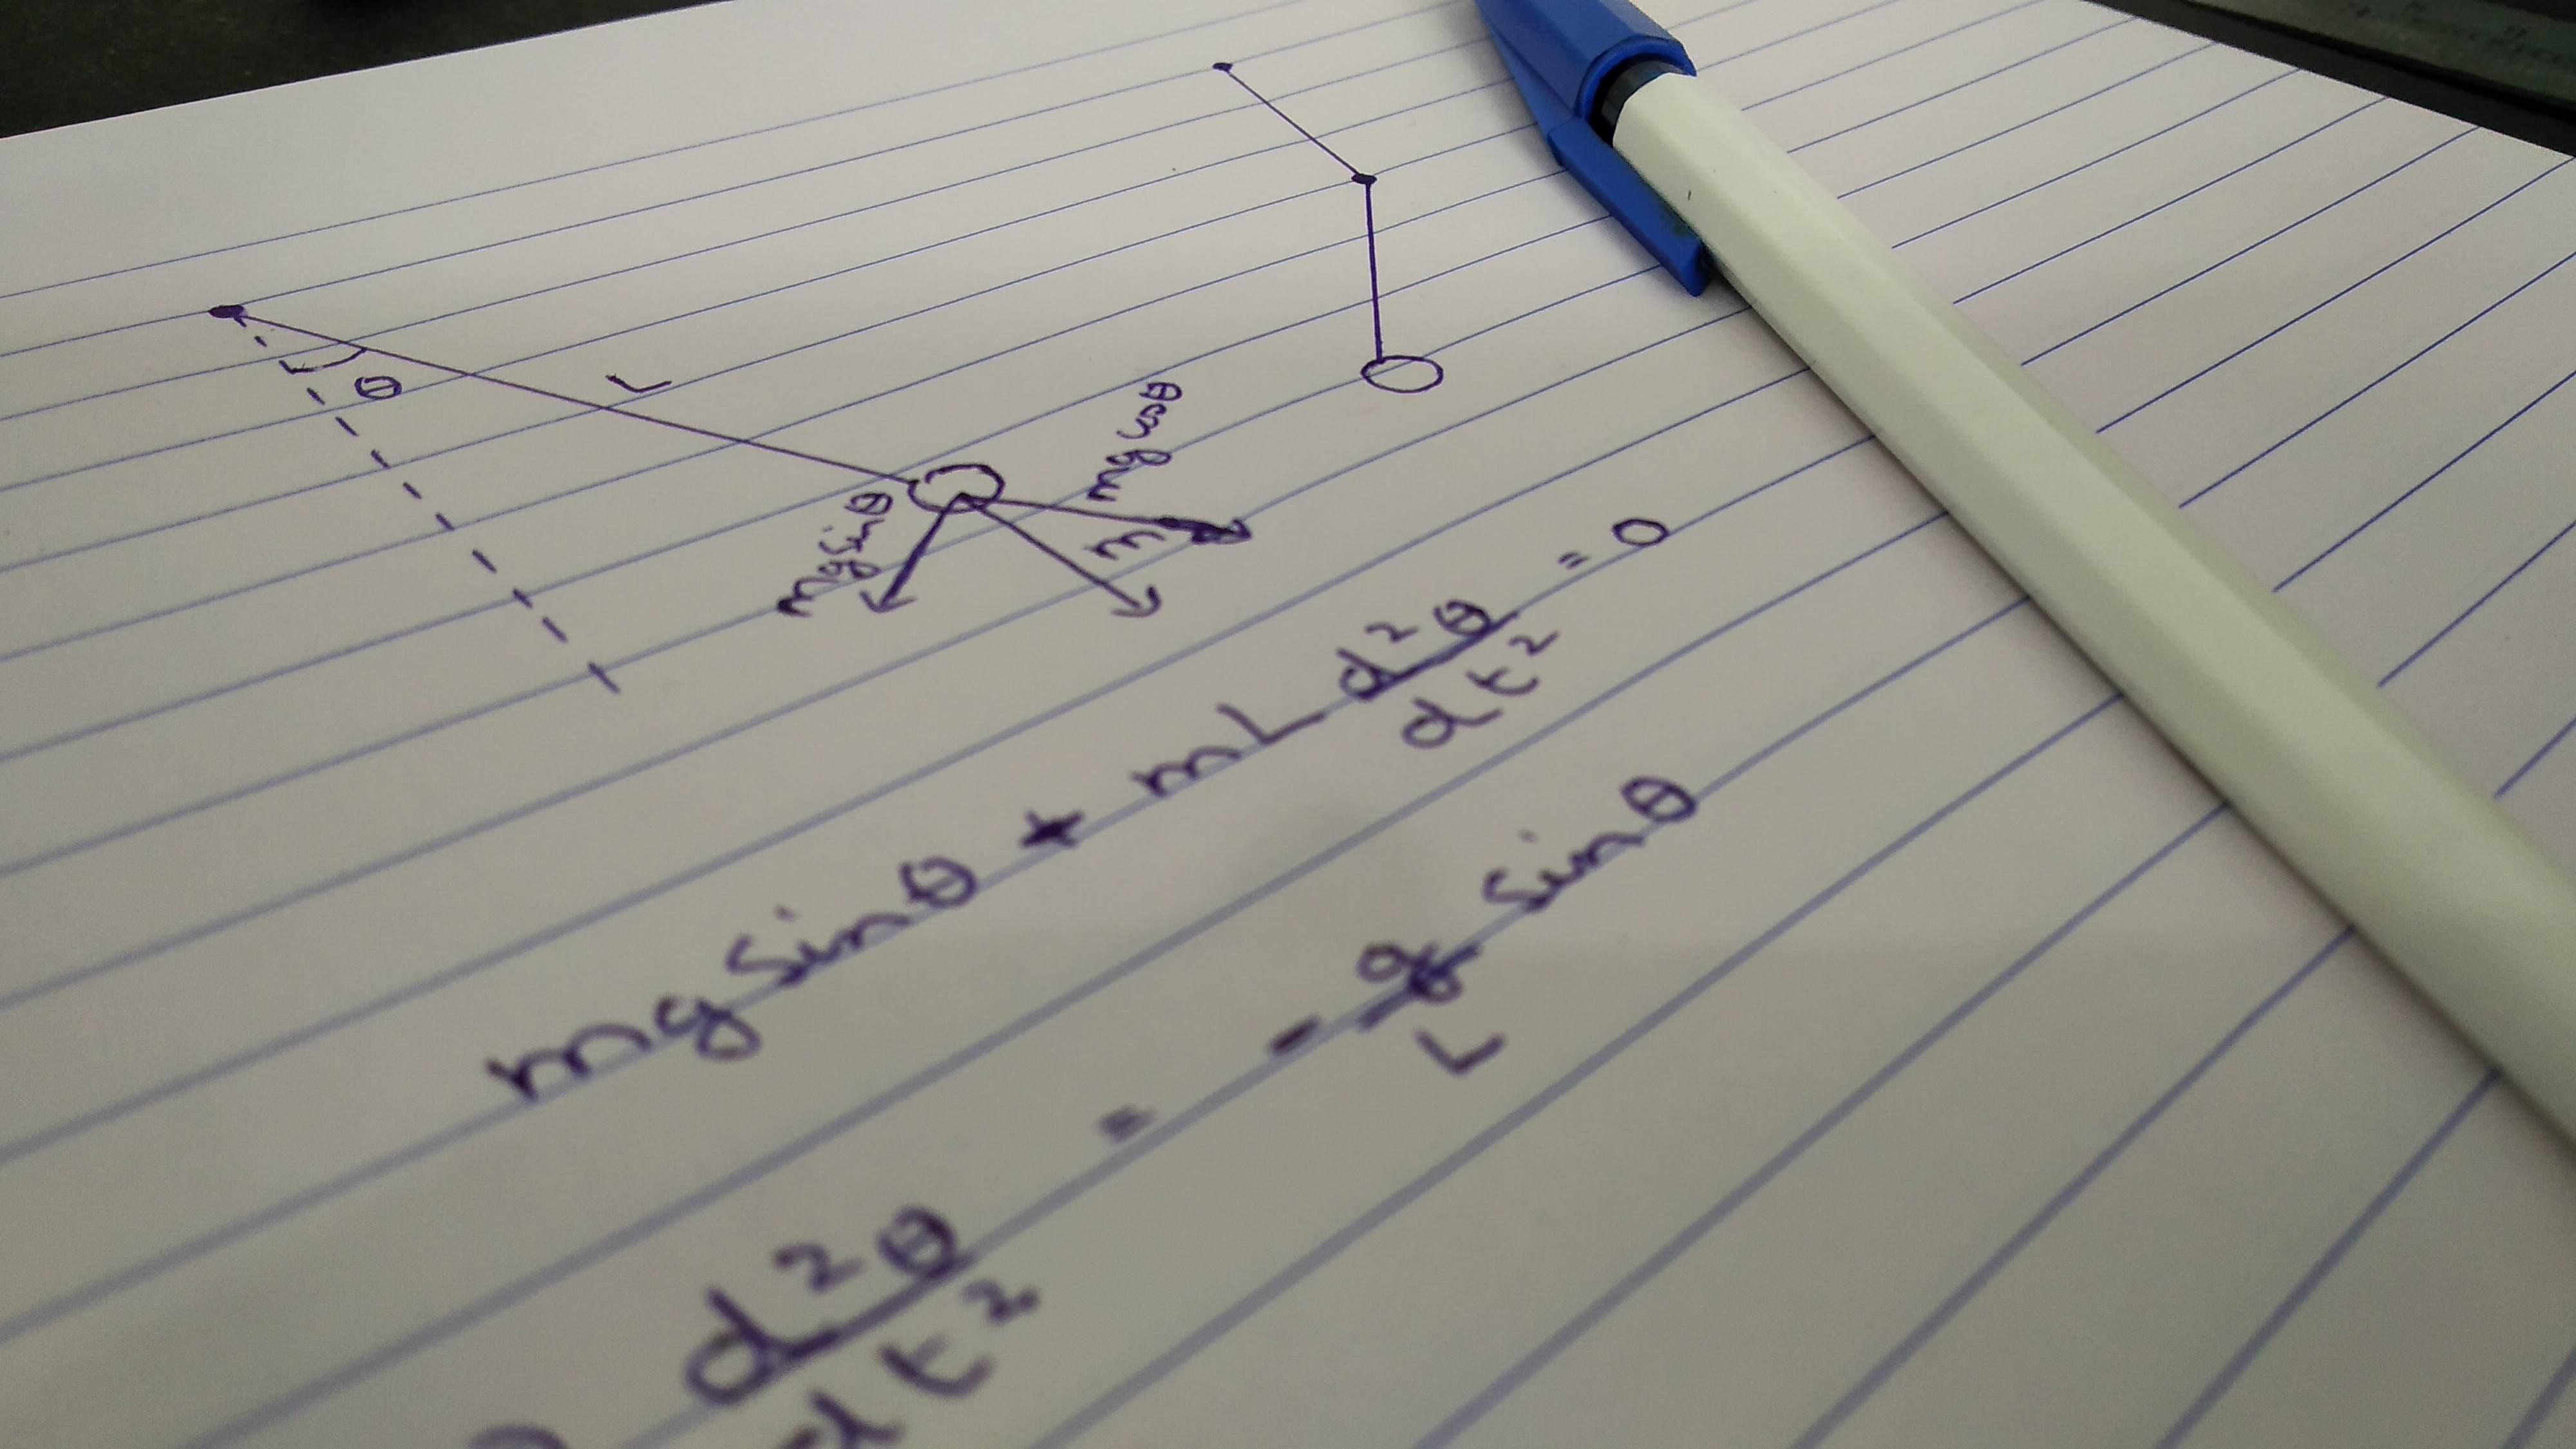 θ
L
mg sinθ
mg cosθ
m
mg sinθ + mL d²θ/dt² = 0
d²θ/dt² = - g/L sinθ